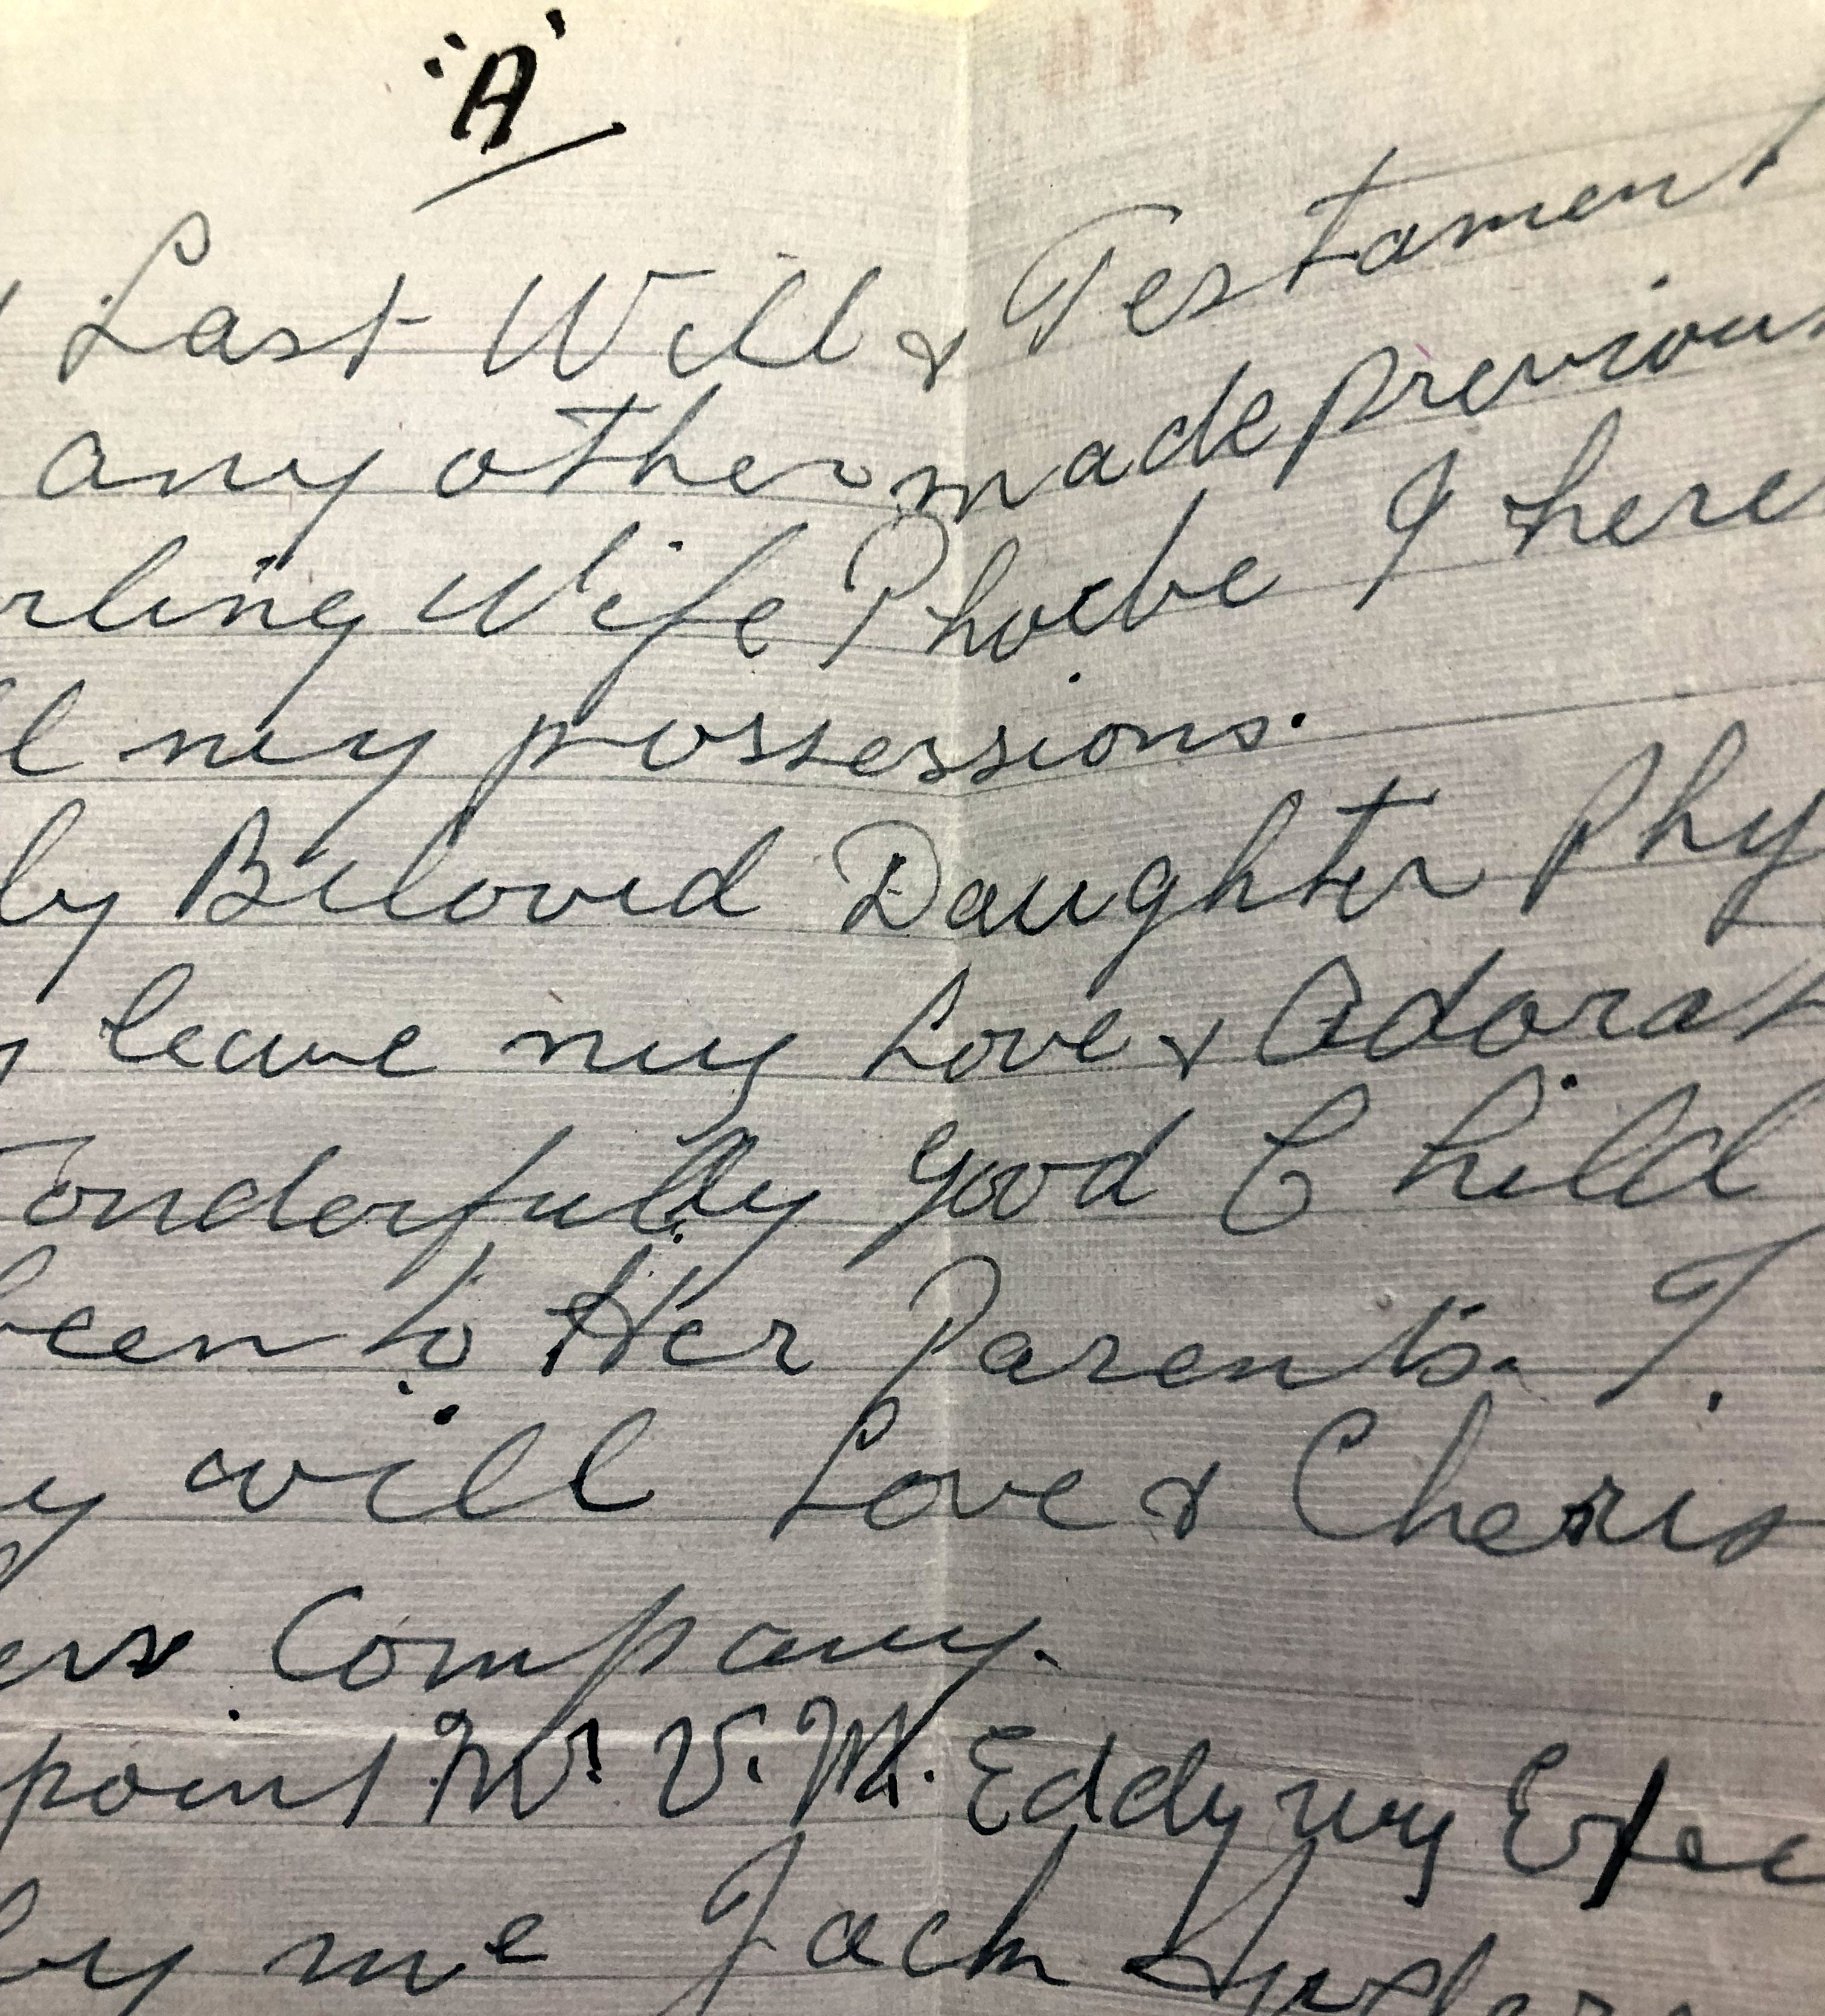 'A'
Last Will & Testament
any other made previous
rling Wife Phoebe I here
l my possessions.
ly Beloved Daughter Phy
y leave my Love & Adorat
onderfully good Child
been to Her Parents. I.
y will Love & Cheris
ers Company.
point Mr. V. M. Eddy my Exec
by me Jack